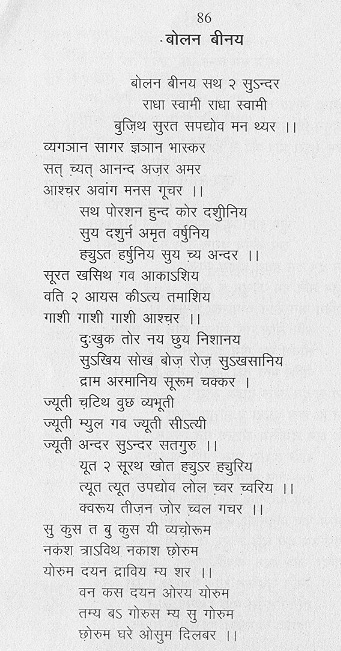 86
बोलन बीनय
बोलन बीनय सथ २ सुऽन्दर
राधा स्वामी राधा स्वामी
बुज़िथ सुरत सपद्योव मन थ्यर ।।
व्यगञान सागर ज्ञञान भास्कर
सत् च़्यत् आनन्द अज़र अमर
आश्चर अवांग मनस गूचर ।।
सथ पोरशन हुन्द कोर दर्शुीनिय
सुय दर्शुन अमृत वर्षुनिय
ह्युऽत हर्षुनिय सुय च़्य अन्दर ।।
सूरत खसिथ गव आकाऽशिय
वति २ आयस कीऽत्य तमाशिय
गाशी गाशी गाशी आश्च़र ।।
दुःखुक तोर नय छुय निशानय
सुऽखिय सोख बोज़ रोज़ सुऽखसानिय
द्राम अरमानिय सूरूम चक्कर ।
ज्यूती च़टिथ वुछ व्यभूती
ज्यूती म्युल गव ज्यूती सीऽत्यी
ज्यूती अन्दर सुऽन्दर सतगुरु ।।
यूत २ सूरथ खोत ह्युऽर ह्युरिय
त्यूत त्यूत उपद्योव लोल च़्वर च़्वरिय ।।
क्वरूय तीज़न ज़ोर च़्वल गचर ।।
सु कुस त बु कुस यी व्यच़ोरूम
नकश त्राऽविथ नकाश छोरुम
योरुम दयन द्राविय म्य शर ।।
वन कस दयन ओरय योरुम
तम्य बऽ गोरुस म्य सु गोरुम
छ़ोरुम घरे ओसुम दिलबर ।।